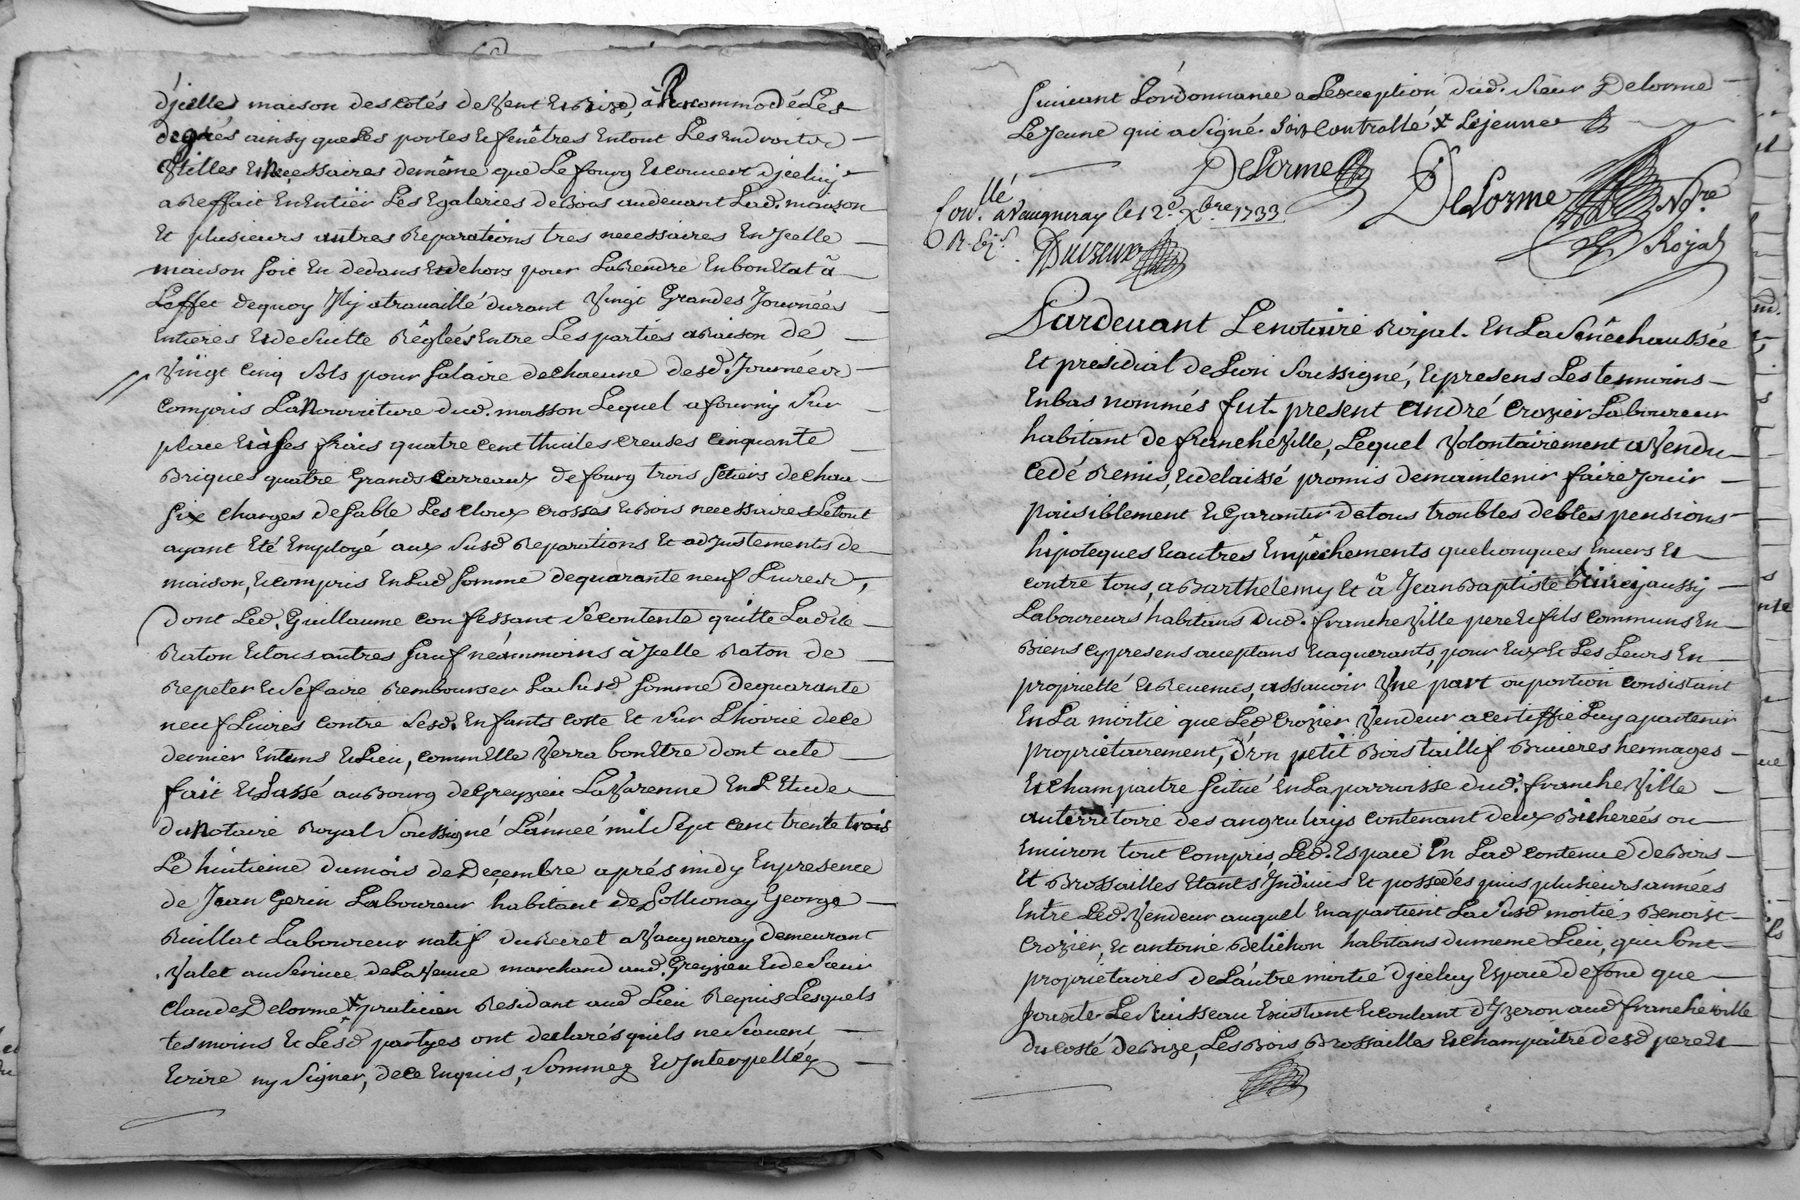 d'jcelles maison des cotés de Vent et Bize, â Racommodé Les
degrés ainsy que Les portes et fenêtres En tout Les Endroits
Vtilles et Necessaires de même que Le fourg et couvert d'jceluy
a Reffait En Entier Les Egaleries de Bois au devant Lad. maison
Et plusieurs autres Reparations tres necessaires En Jcelle
maison soit En dedans Et dehors pour La Rendre En bon Etat â
L'effet de quoy Jl y a travaillé durant Vingt Grandes Journées
Entieres et de suitte Réglées Entre Les parties a Raison de
Vingt cinq sols pour salaire de chacune desd. Journées
compris La Nourriture dud. masson Lequel a fourny sur
place et à ses frais quatre cent thuiles creuses cinquante
Briques quatre Grands carreaux de fourg trois setiers de chau
six charges de sable Les cloux crosses et Bois necessaires Le tout
ayant Eté Employé aux susd Reparations Et adjustements de
maison, et compris En Lad somme de quarante neuf Livres,
dont Led. Guillaume confessant se contente quitte Ladite
Raton et tous autres sauf néammoins à Jcelle Raton de
Repeter et se faire Rembourser La susd somme de quarante
neuf Livres contre Lesd. Enfants coste Et sur L'hoirie de ce
dernier En tems et Lieu, comm'Elle Verra bon Etre dont acte
fait et passé au Bourg de Greyzieu La Varenne En L'Etude
du Notaire Royal soussigné L'année mil sept cent trente trois
Le huitieme du mois de Decembre aprés midy En presence
de Jean Gerin Laboureur habitant de Pollionay, George
Ruillat Laboureur natif du Recret a Vaugneray demeurant
Valet au service de La Veuve marchand aud. Greyzieu Et de sieur
Claude Delorme praticien Residant aud Lieu Requis Lesquels
tesmoins Et Lesd partyes ont declaré qu'ils ne scavent,
Ecrire ny signer, de ce Enquis, sommez et Interpellez
suivant L'ordonnance a L'exception dud. sieur Delorme
Le Jeune qui a signé. soit controllé Lejeune
Delorme
Delorme Nre
Royal
Con.llé a Vaugneray le 12e Xbre 1733
R. 
Pardevant Le notaire Royal En La Sénéchaussée
Et presidial de Lion soussigné, et presens Les temoins
En bas nommés fut present André Crozier Laboureur
habitant de francheville, Lequel Volontairement a Vendu
cedé Remis, et delaissé promis de maintenir faire Jouir
paisiblement et Garantir de tous troubles debtes pensions
hipoteques et autres Empêchements quelconques Envers Et
contre tous, a Barthelemy Et â Jean Baptiste aussy
Laboureurs habitans dud. francheville pere et fils communs En
Biens cy presens aceptans et aquerants, pour Eux Et Les Leurs En
proprietté et Revenus, assavoir Vne part ou portion consistant
En La moitié que Led Crozier Vendeur a certiffié Luy apartenir
proprietairement, d'vn petit Bois taillif Bruieres hermages
Et champaitre situé En La parroisse dud. francheville
au territoire des angrulays contenant deux Bicherées ou
Environ tout compris, Led. Espace En Lad contenue de Bois
Et Brossailles Etants Indivis Et possedés puis plusieurs années
Entre Led. Vendeur auquel En apartient La susd moitié, Benoist
Crozier, Et antoine Belichon habitans du meme Lieu, qui sont
proprietaires de L'autre moitié d'jceluy Espace de fond que
Jouxte Le Ruisseau Existant Et coulant d'Jzeron aud francheville
du costé de Bize, Les Bois Brossailles et champaitre desd pere et